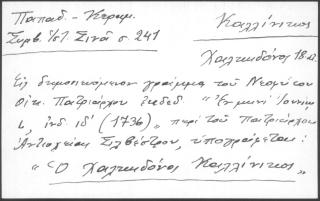 Παπαδ. - Κεραμ.
Καλλίνικος
Συμβ. Ἱστ. Σινᾶ σ. 241
Χαλκηδόνος 18 αἰ.
Εἰς δημοσιευόμενον γράμμα τοῦ Νεοφύτου
Οἰκ. Πατριάρχου "Ἐν μηνὶ Ἰουνίῳ
ἰνδ. ιδ' (1736)„ περὶ τοῦ Πατριάρχου
Ἀντιοχείας Σιλβέστρου, ὑπογράφεται:
"Ὁ Χαλκηδόνος Καλλίνικος„